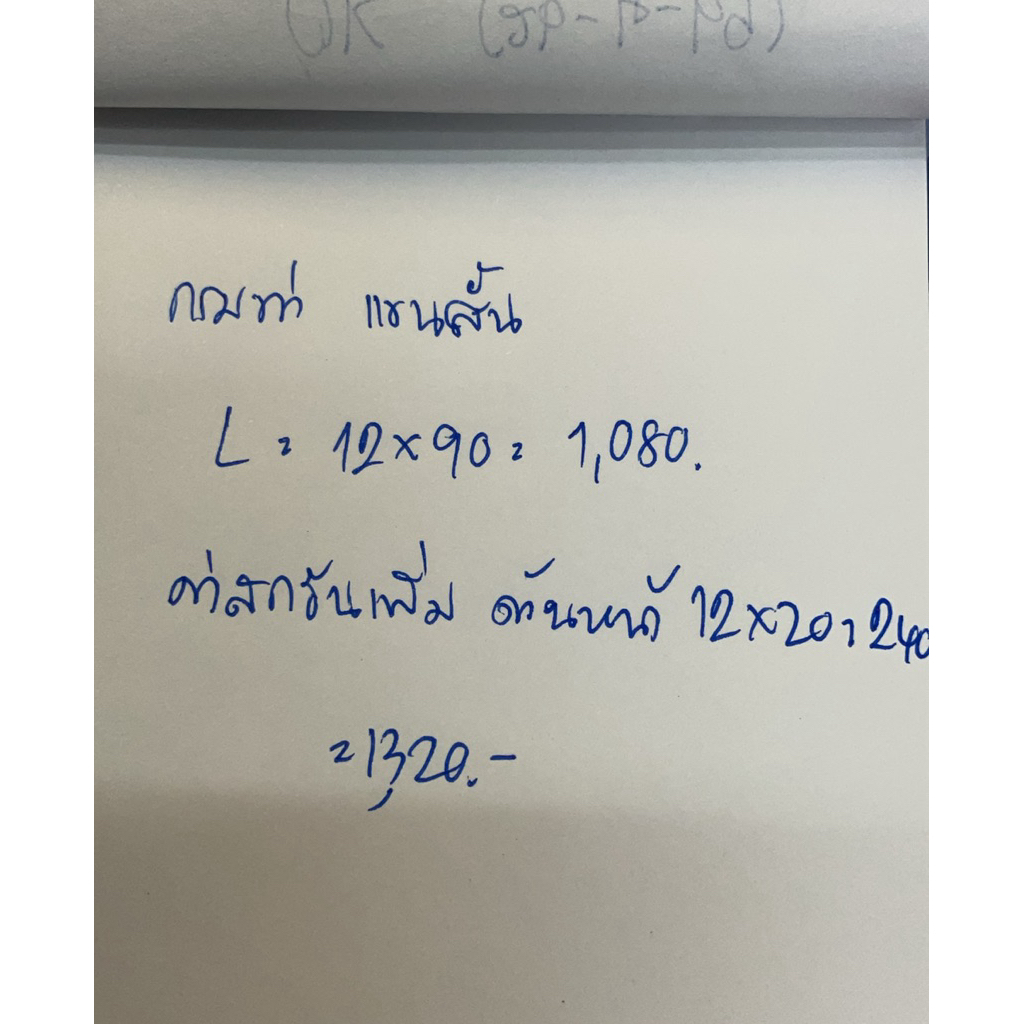 กรมท่า แขนสั้น
L = 12 x 90 = 1,080.
ค่าสกรีนเพิ่ม ด้านหน้า 12 x 20 = 240
= 1,320.-